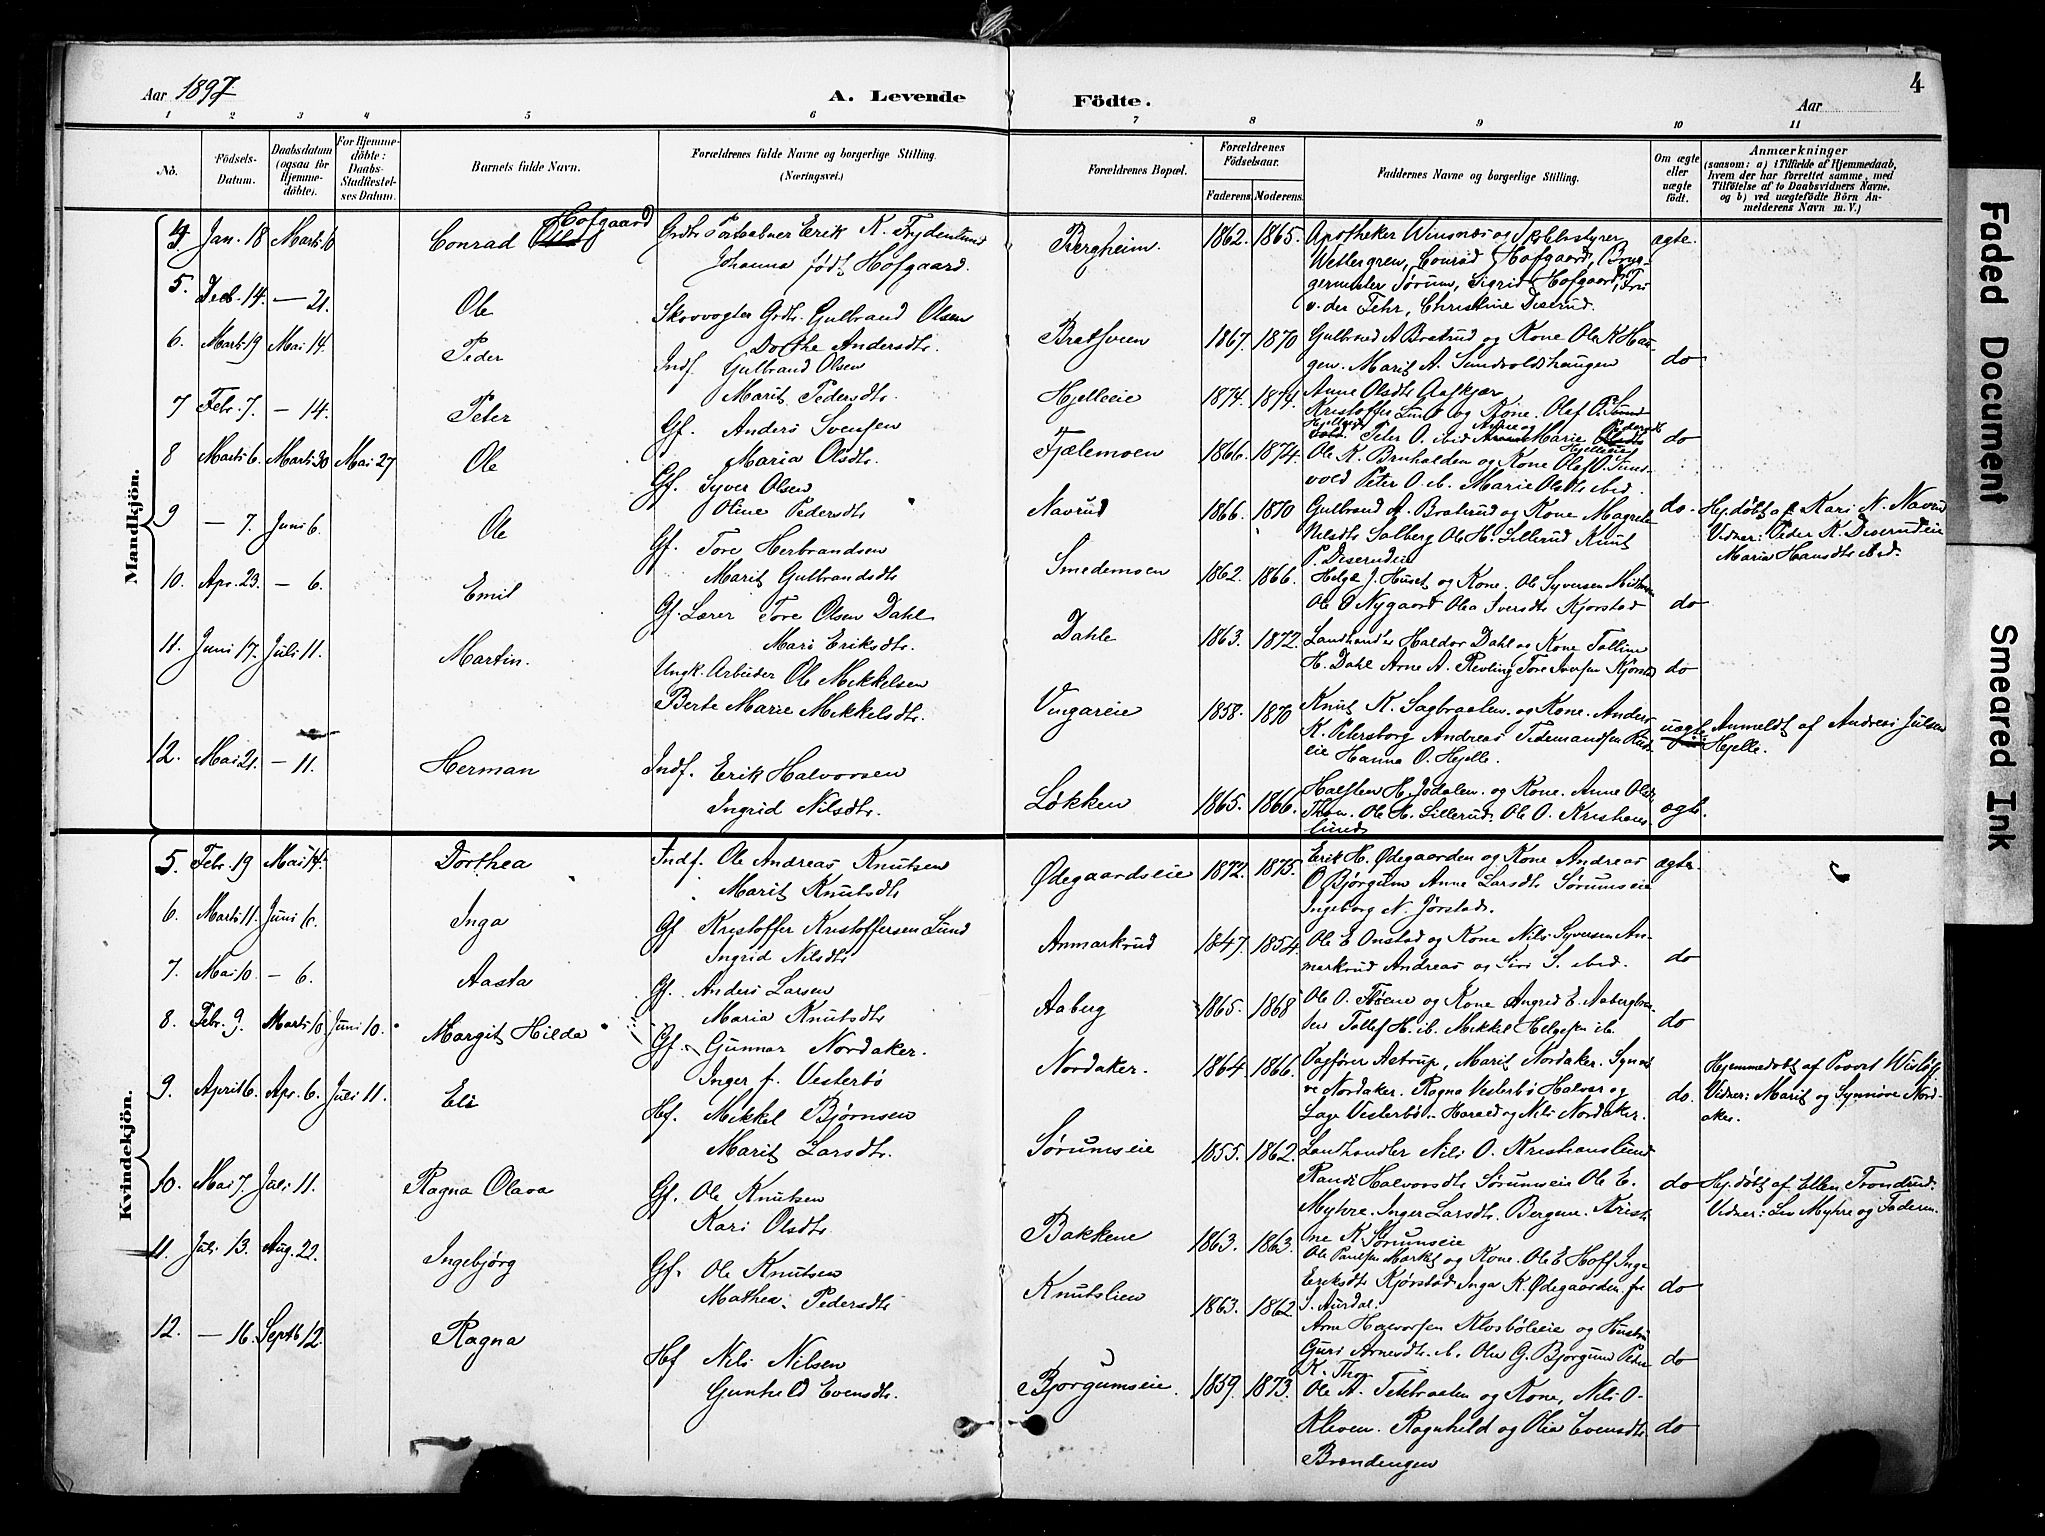 Aar 1897
A. Levende
Födte.
Aar
4
1 2 3 4 5 6 7 8 9 10 11
No.
Födsels-
Datum.
Daabsdatum
(ogsaa för
Hjemme-
döbte).
For Hjemme-
döbte:
Daabs-
Stadfæstel-
ses Datum.
Barnets fulde Navn.
Forældrenes fulde Navne og borgerlige Stilling.
(Næringsvei.)
Forældrenes Bopæl.
Forældrenes
Födselsaar.
Faderens. Moderens.
Faddernes Navne og borgerlige Stilling.
Om ægte
eller
uægte
født.
Anmærkninger
(saasom: a) i Tilfælde af Hjemmedaab,
hvem der har forrettet samme, med
Tilföielse af to Daabsvidners Navne,
og b) ved uægtefödte Börn An-
melderens Navn m. V.)
Mandkjön.
4 Jan. 18 Marts 6 Conrad Hofgaard
Johanna født Hofgaard.
Bergheim. 1862. 1865.
Apotheker Winsnes og
Wettergren, Conrad Hofgaard, Bryg-
germester Sørum, Sigrid Hofgaard, Fru
v. der Fehr, Christine Diserud.
ægte.
5. Decb. 14. — 21. Ole
Skovvogter Grdbr. Gulbrand Olsen
Dorthe Andersdtr.
1867. 1870
Gulbrand A Bratrud og Kone Ole K Hau-
gen. Marit A. Sundvoldshaugen
Anne Olsdtr
do
6. Marts 19 Mai 14. Peder
Indf. Gulbrand Olsen
Marit Pedersdtr.
Hjelleeie 1874. 1874.
Kristoffer Lund og Kone. Olaf
Peter O. ibid Marie
do
7 Febr. 7. — 14. Peter
Gf. Anders Svensen
Maria Olsdtr.
Fjælemoen 1866. 1874.
Ole K. Bruhalden og Kone Olaf O. Sund-
vold Peter O. ib. Marie Olsdtr ibid.
8 Marts 6. Marts 30 Mai 27 Ole
Gf. Syver Olsen
Oline Pedersdtr
Navrud 1866. 1870
Gulbrand A. Bratrud og Kone Magrete
Nilsdtr Solberg Ole H. Lillerud Knut
P. Diserudeie
do. Hj. døbt af Kari N. Navrud
Vidner: Peder K. Diserudeie
Maria Hansdtr ibid.
9 — 7. Juni 6. Ole
Gf. Tore Herbrandsen
Marit Gulbrandsdtr
Smedemoen 1862. 1866.
Helge J. Huset og Kone. Ole Syversen
Ole O Nygaard Olia Iversdtr Kjørstad
do
10. Apr. 23. — 6. Emil
Gf. Lærer Tore Olsen Dahl
Mari Eriksdtr.
Dahle 1863. 1872.
Landhandler Haldor Dahl og Kone
H. Dahl Arne A. Revling Tore Iversen Kjørstad
do
11. Juni 17. Juli 11. Martin.
Ungk. Arbeider Ole Mikkelsen
Berte Marie Mikkelsdtr.
Vingareie 1858. 1870
Knut K. Sagbraaten og Kone. Anders
K. Petersborg Andreas Tidemandsen
eie Hanna O. Hjelle.
uægte Anmeldt af Andreas Julsen
Hjelle.
12. Mai 21. — 11. Herman
Indf. Erik Halvorsen
Ingrid Nilsdtr.
Løkken 1865. 1866.
Halsten H. Jødalen og Kone. Anne Olsdtr
Thon. Ole H. Lillerud. Ole O. Kristians-
lund.
ægte.
Kvindekjön.
5. Febr. 19 Mai 14. Dorthea
Indf. Ole Andreas Knutsen
Marit Knutsdtr
Ødegaardseie 1872. 1875.
Erik H. Ødegaarden og Kone Andreas
O Bjørgum Anne Larsdtr Sørumseie
Ingeborg N. Jørstad.
ægte.
6. Marts 11. Juni 6. Inga
Gf Kristoffer Kristoffersen Lund
Ingrid Nilsdtr
Anmarkrud 1847. 1854.
Ole E Onstad og Kone Nils Syversen An-
markrud Andreas og Siri S. ibid.
do
7. Mai 10. — 6. Aasta
Gf. Anders Larsen
Maria Knutsdtr
Aaberg 1865. 1868
Ole O. og Kone Angrid E.
Tollef H. ib. Mikkel Helgesen ib.
do
8. Febr. 9. Marts 10 Juni 10. Margit Hilda
Gf. Gunnar Nordaker.
Inger f. Vesterbø
Nordaker. 1864. 1866.
Vagfører Astrup, Marit Nordaker. Synnø-
ve Nordaker. Ragna Vesterbø Halvor og
Lage Vesterbø. Harald og Nils Nordaker.
do. Hjemmedøbt af Provst Wisløff
Vidner: Marit og Synnøve Nord-
aker.
9. April 6. Apr. 6. Juli 11. Eli
Hf. Mikkel Bjørnsen
Marit Larsdtr.
Sørumseie 1855. 1862.
Landhandler Nils O. Kristianslund
Randi Halvorsdtr Sørumseie Ole E.
Myhre. Inger Larsdtr. Bergene. Kristi-
ne K. Sørumseie
do Hj. døbt af Ellen Trondrud.
Vidner: Myhre og Faderen.
10. Mai 7. Juli 11. Ragna Olava
Gf. Ole Knutsen
Kari Olsdtr.
Bakkene 1863. 1863.
Ole Paulsen og Kone. Ole E Hoff Inga
Eriksdtr Kjørstad Inga K. Ødegaarden fra
S. Aurdal.
do
11. Juli 13. Aug. 22. Ingebjørg
Gf. Ole Knutsen
Mathea Pedersdtr
Knutslien 1863. 1862
Arne Halvorsen Klosbøleie og Hustru
Guri Arnesdtr ib. G. Bjørgum Peder
K. Thon
do
12. — 16. Septb 12. Ragna
Hf Nils Nilsen
Gunhild Evensdtr.
Bjørgumseie. 1859. 1873.
Ole A. og Kone, Nils O.
Kleven. Ragnhild og Olia Evensdtr
Brændengen
do
Faded Document
Smeared Ink